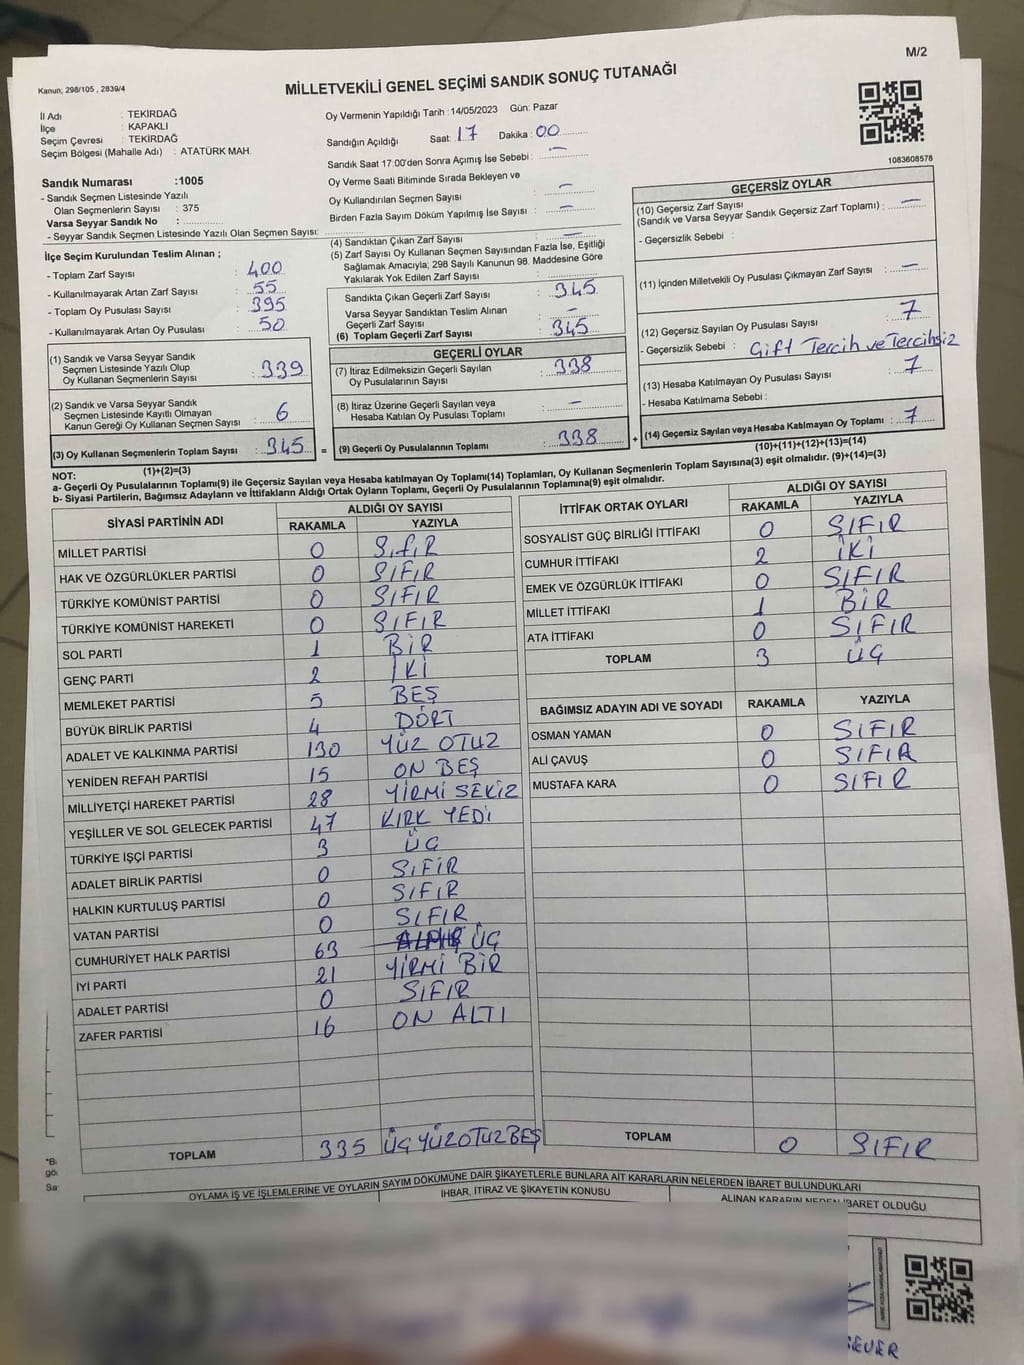 M/2
Kanun, 298/105 , 2839/4
MİLLETVEKİLİ GENEL SEÇİMİ SANDIK SONUÇ TUTANAĞI
İl Adı : TEKİRDAĞ
İlçe : KAPAKLI
Seçim Çevresi : TEKİRDAĞ
Seçim Bölgesi (Mahalle Adı) : ATATÜRK MAH.
Oy Vermenin Yapıldığı Tarih : 14/05/2023 Gün: Pazar
Sandığın Açıldığı Saat: 17 Dakika : 00
Sandık Saat 17:00'den Sonra Açımış İse Sebebi : —
Oy Verme Saati Bitiminde Sırada Bekleyen ve
Oy Kullandırılan Seçmen Sayısı : —
Birden Fazla Sayım Döküm Yapılmış İse Sayısı : —
1083608578
Sandık Numarası :1005
- Sandık Seçmen Listesinde Yazılı
Olan Seçmenlerin Sayısı : 375
Varsa Seyyar Sandık No :
- Seyyar Sandık Seçmen Listesinde Yazılı Olan Seçmen Sayısı:
İlçe Seçim Kurulundan Teslim Alınan ;
- Toplam Zarf Sayısı : 400
- Kullanılmayarak Artan Zarf Sayısı : 55
- Toplam Oy Pusulası Sayısı : 395
- Kullanılmayarak Artan Oy Pusulası : 50
(1) Sandık ve Varsa Seyyar Sandık
Seçmen Listesinde Yazılı Olup
Oy Kullanan Seçmenlerin Sayısı : 339
(2) Sandık ve Varsa Seyyar Sandık
Seçmen Listesinde Kayıtlı Olmayan
Kanun Gereği Oy Kullanan Seçmen Sayısı : 6
(3) Oy Kullanan Seçmenlerin Toplam Sayısı : 345
(1)+(2)=(3)
(4) Sandıktan Çıkan Zarf Sayısı : —
(5) Zarf Sayısı Oy Kullanan Seçmen Sayısından Fazla İse, Eşitliği
Sağlamak Amacıyla; 298 Sayılı Kanunun 98. Maddesine Göre
Yakılarak Yok Edilen Zarf Sayısı : —
Sandıkta Çıkan Geçerli Zarf Sayısı : 345
Varsa Seyyar Sandıktan Teslim Alınan
Geçerli Zarf Sayısı : —
(6) Toplam Geçerli Zarf Sayısı : 345
GEÇERLİ OYLAR
(7) İtiraz Edilmeksizin Geçerli Sayılan
Oy Pusulalarının Sayısı : 338
(8) İtiraz Üzerine Geçerli Sayılan veya
Hesaba Katılan Oy Pusulası Toplamı : —
= (9) Geçerli Oy Pusulalarının Toplamı : 338 +
GEÇERSİZ OYLAR
(10) Geçersiz Zarf Sayısı
(Sandık ve Varsa Seyyar Sandık Geçersiz Zarf Toplamı) : —
- Geçersizlik Sebebi :
(11) İçinden Milletvekili Oy Pusulası Çıkmayan Zarf Sayısı : —
(12) Geçersiz Sayılan Oy Pusulası Sayısı : 7
- Geçersizlik Sebebi : Çift Tercih ve Tercihsiz
(13) Hesaba Katılmayan Oy Pusulası Sayısı : 7
- Hesaba Katılmama Sebebi :
(14) Geçersiz Sayılan veya Hesaba Katılmayan Oy Toplamı : 7
(10)+(11)+(12)+(13)=(14)
NOT:
a- Geçerli Oy Pusulasının Toplamı(9) ile Geçersiz Sayılan veya Hesaba katılmayan Oy Toplamı(14) Toplamları, Oy Kullanan Seçmenlerin Toplam Sayısına(3) eşit olmalıdır. (9)+(14)=(3)
b- Siyasi Partilerin, Bağımsız Adayların ve İttifakların Aldığı Ortak Oyların Toplamı, Geçerli Oy Pusulalarının Toplamına(9) eşit olmalıdır.
SİYASİ PARTİNİN ADI ALDIĞI OY SAYISI
RAKAMLA YAZIYLA
MİLLET PARTİSİ 0 SıfıR
HAK VE ÖZGÜRLÜKLER PARTİSİ 0 SIFIR
TÜRKİYE KOMÜNİST PARTİSİ 0 SIFIR
TÜRKİYE KOMÜNİST HAREKETİ 0 SIFIR
SOL PARTİ 1 BİR
GENÇ PARTİ 2 İKİ
MEMLEKET PARTİSİ 5 BEŞ
BÜYÜK BİRLİK PARTİSİ 4 DÖRT
ADALET VE KALKINMA PARTİSİ 130 YÜZ OTUZ
YENİDEN REFAH PARTİSİ 15 ON BEŞ
MİLLİYETÇİ HAREKET PARTİSİ 28 YİRMİ SEKİZ
YEŞİLLER VE SOL GELECEK PARTİSİ 47 KIRK YEDİ
TÜRKİYE İŞÇİ PARTİSİ 3 ÜÇ
ADALET BİRLİK PARTİSİ 0 SIFIR
HALKIN KURTULUŞ PARTİSİ 0 SIFIR
VATAN PARTİSİ 0 SIFIR
CUMHURİYET HALK PARTİSİ 63 ÜÇ
İYİ PARTİ 21 YİRMİ BİR
ADALET PARTİSİ 0 SIFIR
ZAFER PARTİSİ 16 ON ALTI
TOPLAM 335 ÜÇ YÜZ OTUZ BEŞ
İTTİFAK ORTAK OYLARI ALDIĞI OY SAYISI
RAKAMLA YAZIYLA
SOSYALİST GÜÇ BİRLİĞİ İTTİFAKI 0 SIFIR
CUMHUR İTTİFAKI 2 İKİ
EMEK VE ÖZGÜRLÜK İTTİFAKI 0 SIFIR
MİLLET İTTİFAKI 1 BİR
ATA İTTİFAKI 0 SIFIR
TOPLAM 3 ÜÇ
BAĞIMSIZ ADAYIN ADI VE SOYADI RAKAMLA YAZIYLA
OSMAN YAMAN 0 SIFIR
ALİ ÇAVUŞ 0 SIFIR
MUSTAFA KARA 0 SIFIR
TOPLAM 0 SIFIR
OYLAMA İŞ VE İŞLEMLERİNE VE OYLARIN SAYIM DÖKÜMÜNE DAİR ŞİKAYETLERLE BUNLARA AİT KARARLARIN NELERDEN İBARET BULUNDUKLARI
İHBAR, İTİRAZ VE ŞİKAYETİN KONUSU
ALINAN KARARIN NEDEN İBARET OLDUĞU
SEVER